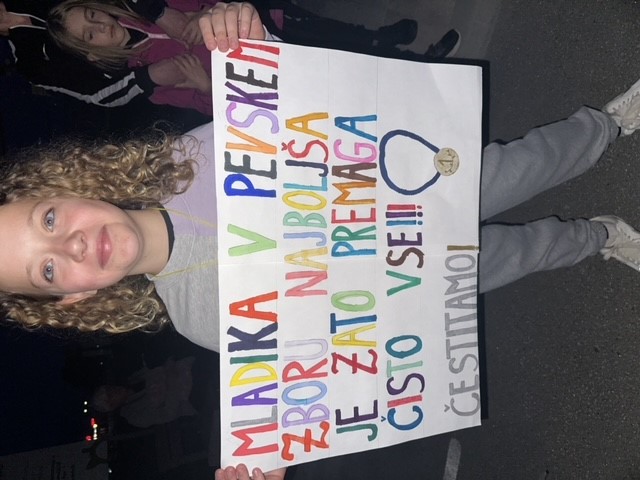 MLADIKA V PEVSKEM
ZBORU NAJBOLJŠA
JE ZATO PREMAGA
ČISTO VSE!!!
1.
ČESTITAMO!